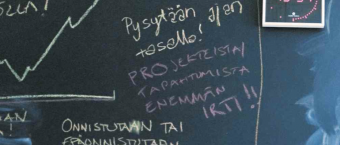 OLLA!
Pysytään ajan
tasalla!
PROJEKTEISTA/
TAPAHTUMISTA
ENEMMÄN
IRTI!!
ONNISTUTAAN TAI
EPÄONNISTUTAAN